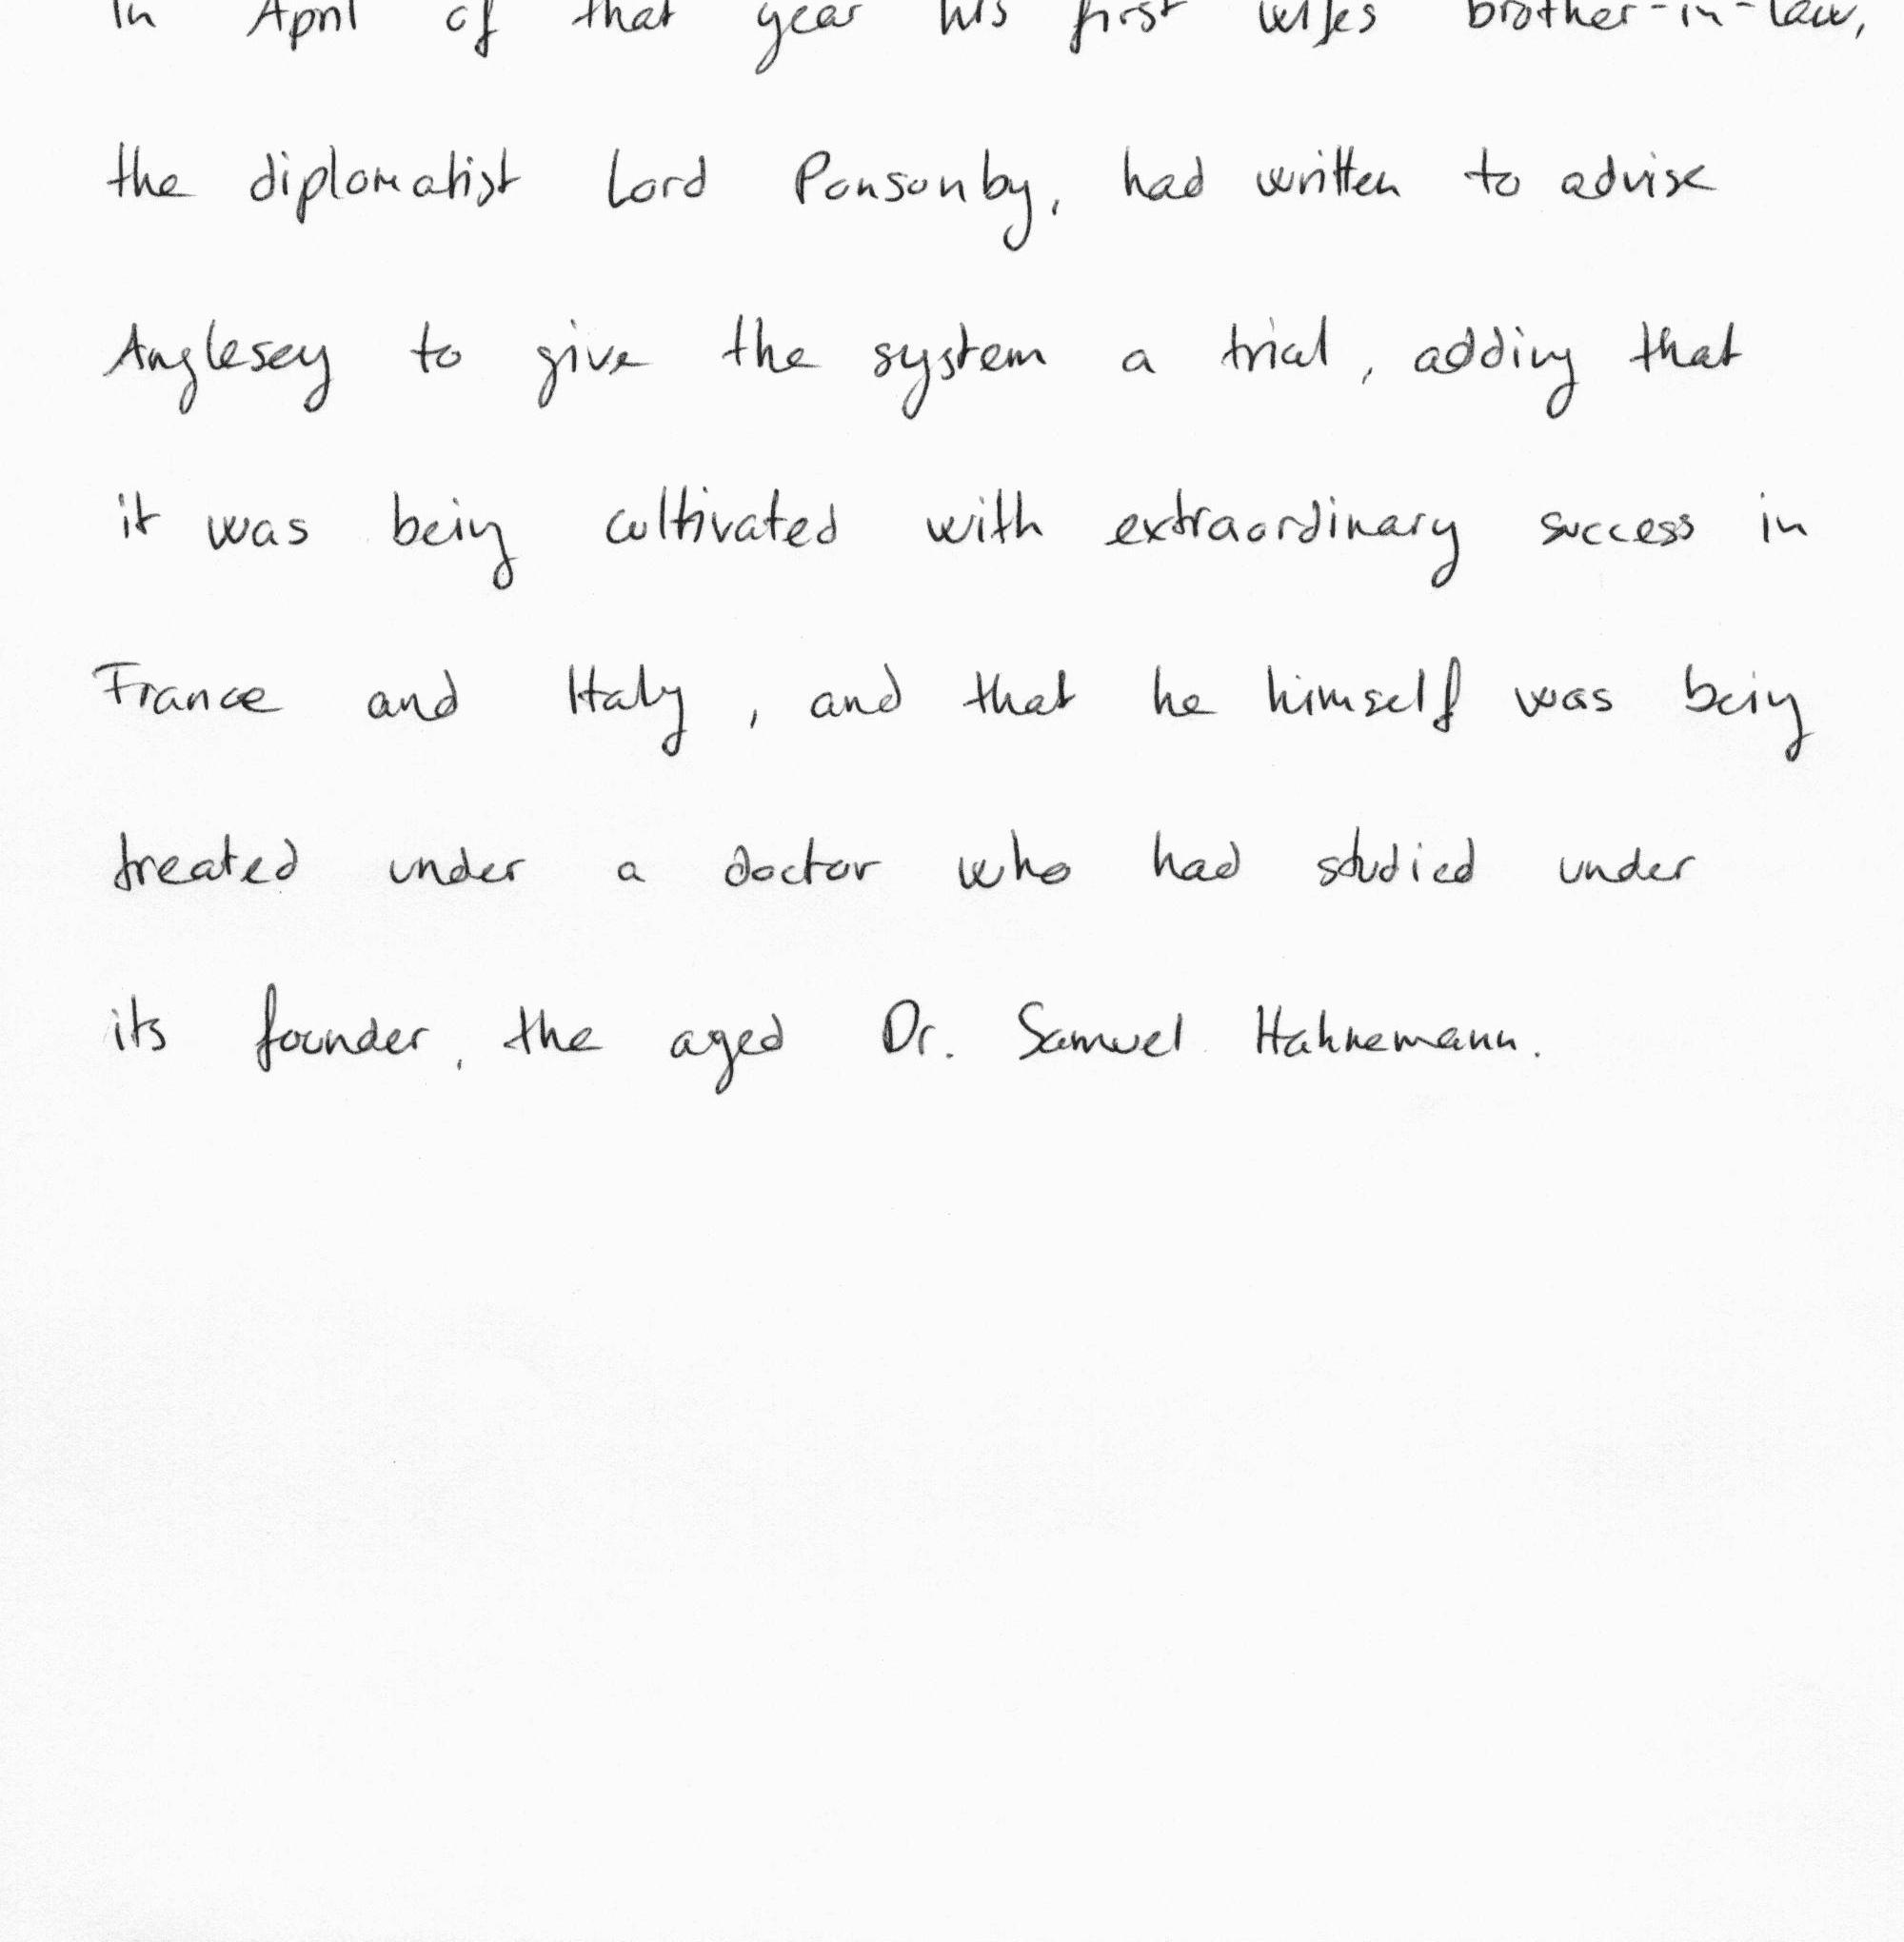 In April of that year his first wifes brother-in-law,
the diplomatist Lord Ponsonby, had written to advise
Anglesey to give the system a trial, adding that
it was being cultivated with extraordinary success in
France and Italy, and that he himself was being
treated under a doctor who had studied under
its founder, the aged Dr. Samuel Hahnemann.